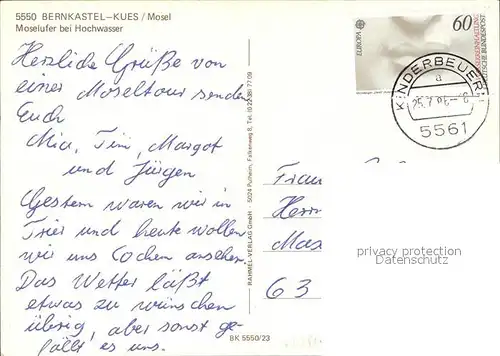 5550 BERNKASTEL-KUES / Mosel
Moselufer bei Hochwasser
Herzliche Grüße von
einer Moseltour senden
Euch
Mia, Tim, Margot
und Jürgen
Gestern waren wir in
Trier und heute wollen
wir uns Cochem ansehen.
Das Wetter läßt
etwas zu wünschen
übrig, aber sonst ge-
fällt es uns.
RAHMEL-VERLAG GmbH · 5024 Pulheim, Falkenweg 8, Tel. (0 22 38) 77 09
BK 5550/23
EUROPA
60
DEUTSCHE BUNDESPOST
KINDERBEUERN
a
5561
Frau
Herrn
Max
63
privacy protection
Datenschutz